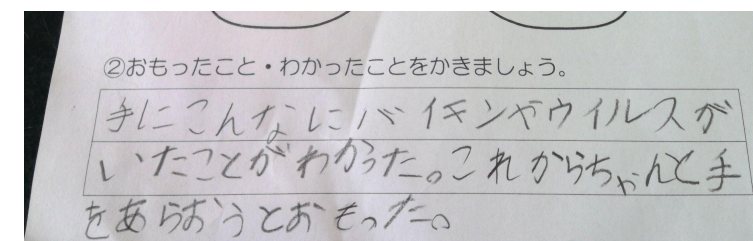 ②おもったこと・わかったことをかきましょう。
手にこんなにバイキンやウイルスが
いたことがわかった。これからちゃんと手
をあらおうとおもった。